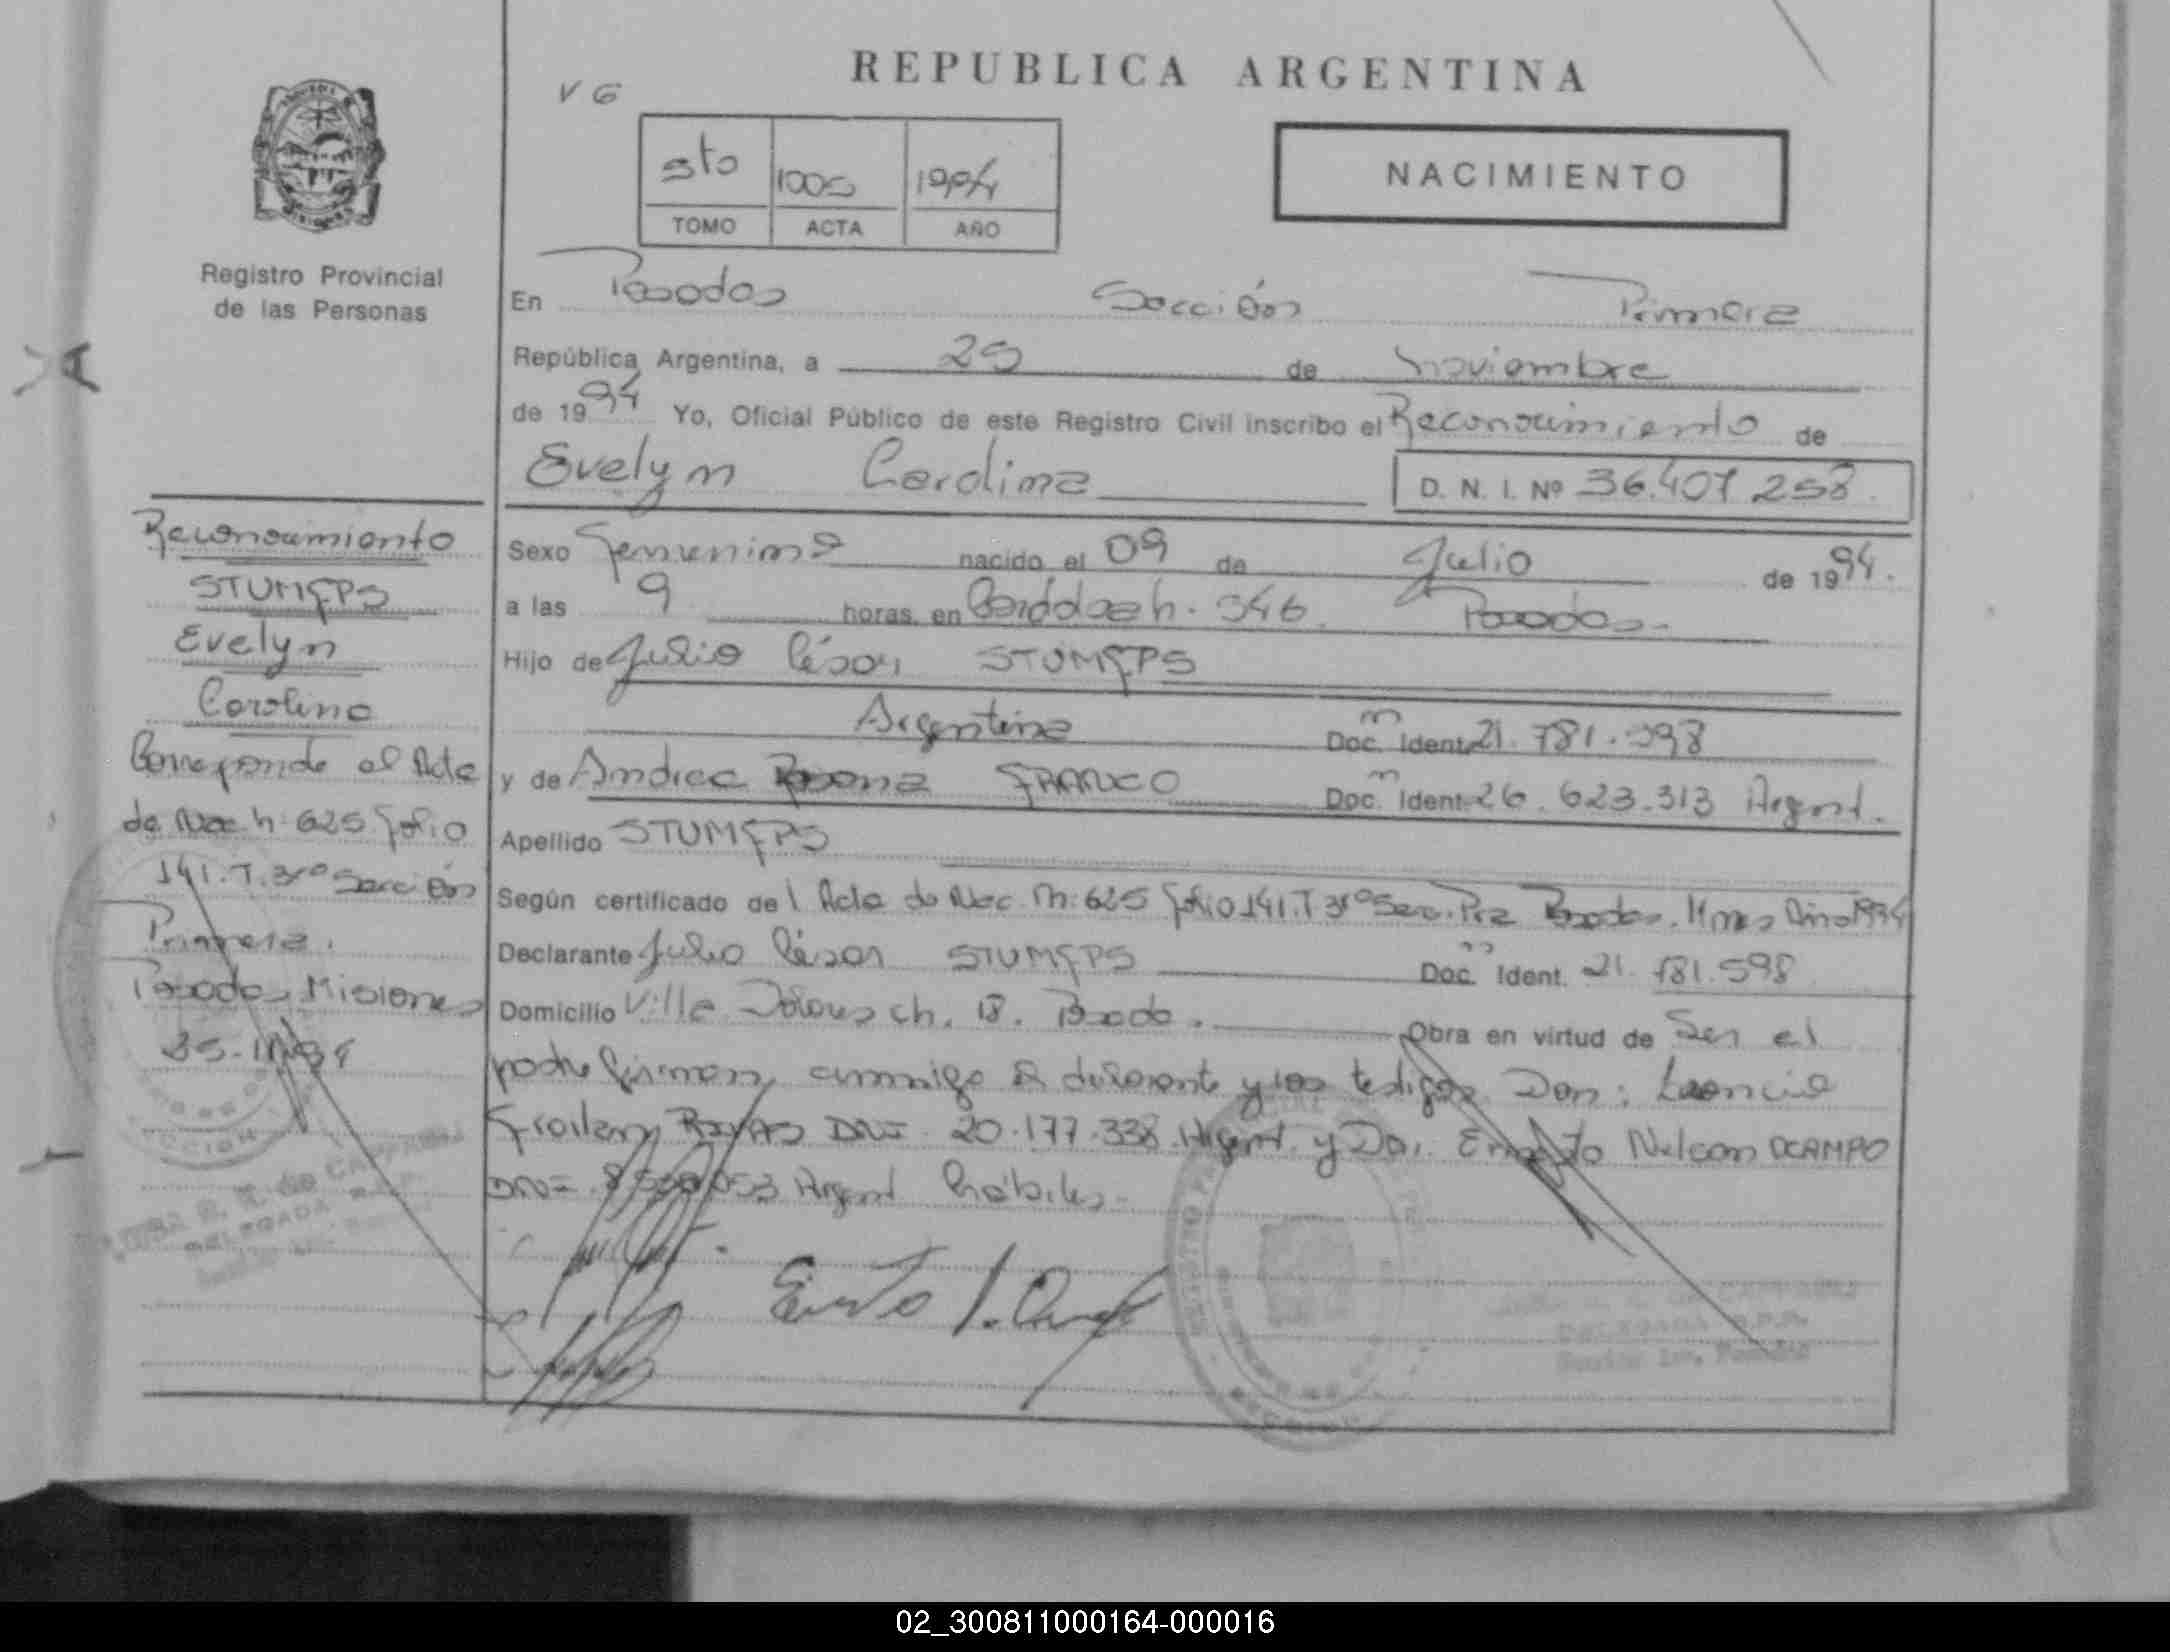 REPUBLICA ARGENTINA
V G
5to 1005 1994
TOMO ACTA AÑO
NACIMIENTO
Registro Provincial
de las Personas
En Posadas Sección Primera
República Argentina, a 25 de noviembre
de 1994 Yo, Oficial Público de este Registro Civil inscribo el Reconocimiento de
Evelyn Carolina D. N. I. Nº 36.407.258
Sexo Femenino nacido el 09 de Julio de 1994.
a las 9 horas, en 546. Posadas.
Hijo de Julio César STUMFPS
Argentina Doc. Ident. 21.781.598
y de Andrea FRANCO Doc. Ident. 26.623.313 Argent.
Apellido STUMFPS
Según certificado del Acta de Nac. n: 625 folio 141.T 3ro Secc. Pra Posadas. Mnes Año 1994
Declarante Julio César STUMFPS Doc. Ident. 21.781.598
Domicilio Villa Dolores ch. 18. Posadas. Obra en virtud de Ser el
padre firman conmigo el declarante y los testigos Don: Leoncio
DNI. 20.177.338 Argent. y Don. Ernesto Nelson OCAMPO
DNI. Argent hábiles.
Reconocimiento
STUMFPS
Evelyn
Carolina
Corresponde al Acta
de Nac n: 625 folio
141.T.3ro Sección
Primera.
Posadas, Misiones
25.11.94
DELEGADA R.P.P.
02_300811000164-000016